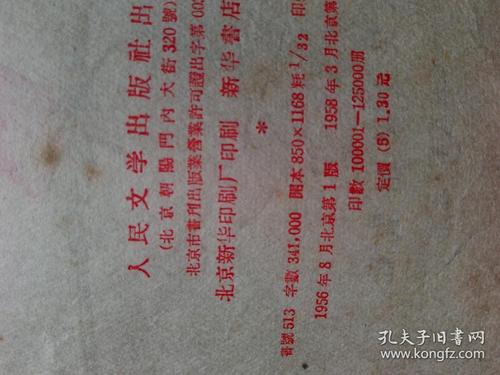 人民文学出版社出
(北京朝陽門內大街320號)
北京市書刊出版業營業許可證出字第002
北京新华印刷厂印刷 新华書店
*
書號513 字數341,000 開本850×1168耗1/32 印
1956年8月北京第1版 1958年3月北京第
印數100001—125000册
定價(5)1.30元
孔夫子旧书网
www.kongfz.com